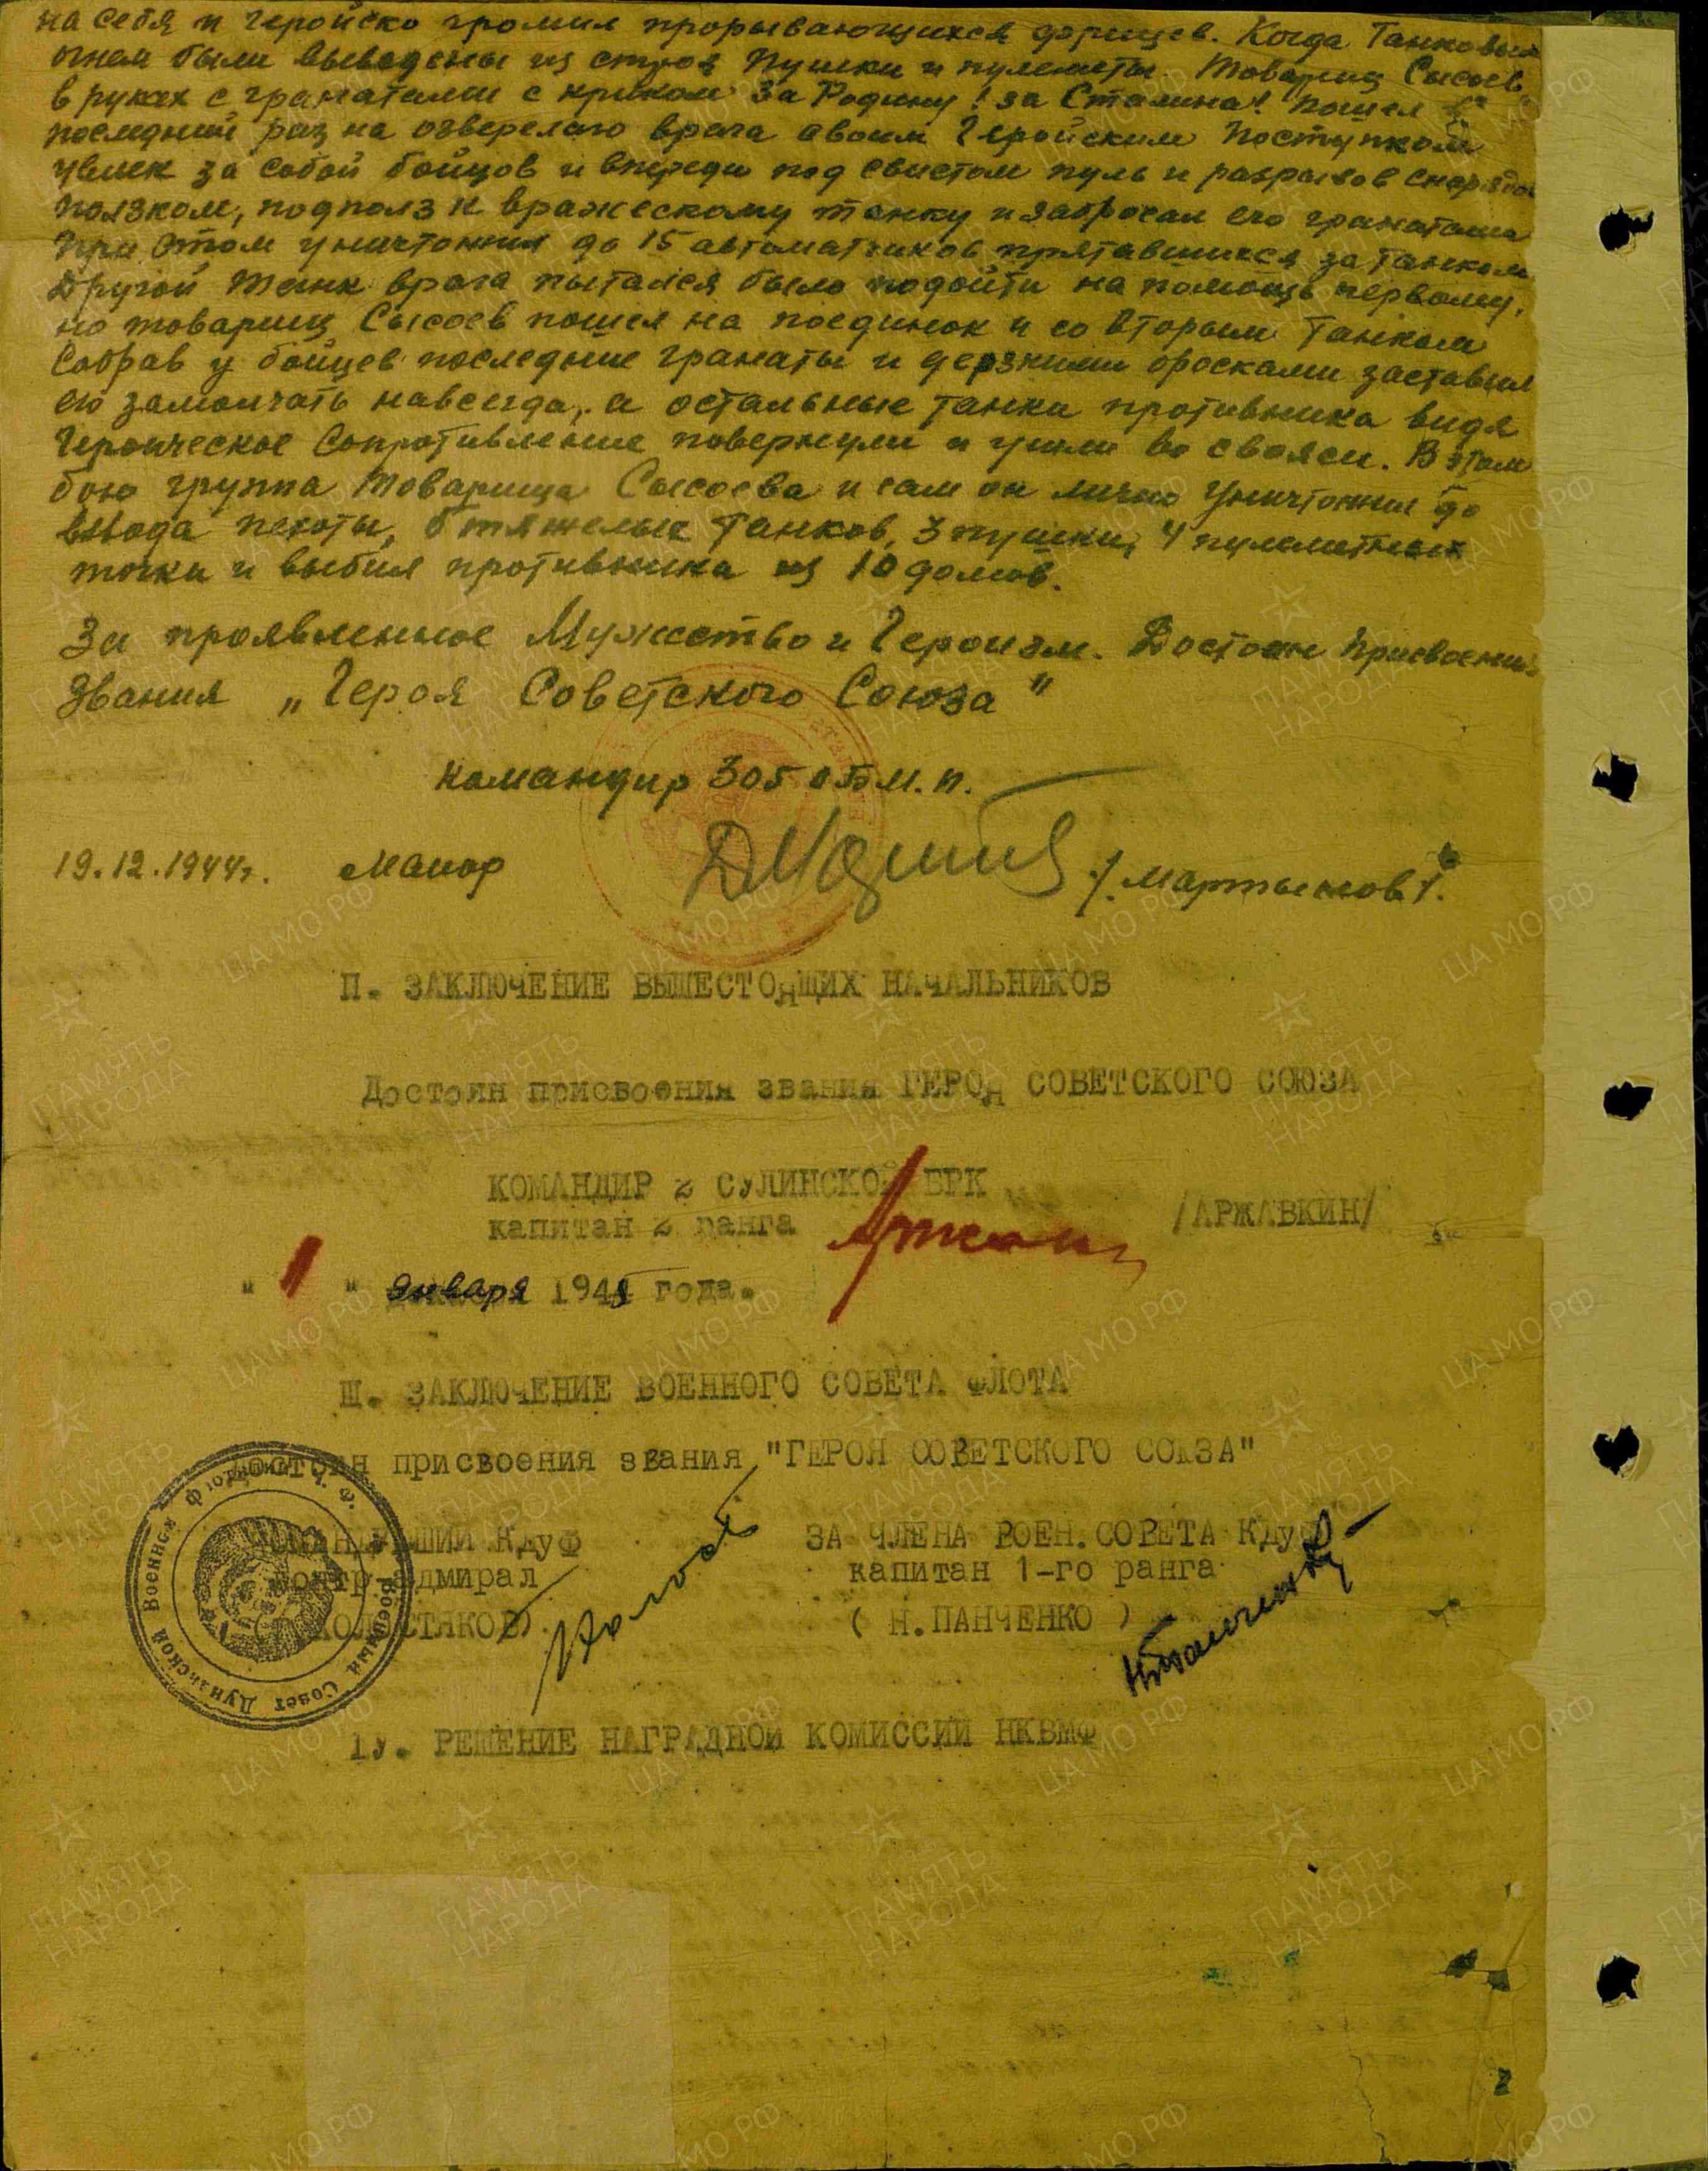 на себя и геройско громил прорывающихся фрицев. Когда Танковым
огнем были выведены из строя Пушки и пулеметы. Товарищ Сысоев
в руках с гранатами с криком За Родину! за Сталина! пошел в
последний раз на озверелаго врага своим Геройским Поступком
увлек за собой бойцов и впереди под свистом пуль и разрывов снарядов
ползком, подполз к вражескому танку и забросал его гранатами
При этом уничтожил до 15 автоматчиков прятавшихся за танком
Другой танк врага пытался было подойти на помощь первому,
но товарищ Сысоев пошел на поединок и со вторым Танком
Собрав у бойцев последние гранаты и дерзкими бросками заставил
его замолчать навсегда, а остальные танки противника видя
Героическое Сопротивление повернули и ушли во свояси. В этом
бою группа Товарища Сысоева и сам он лично Уничтожил до
взвода пехоты, 6 тяжелых Танков, 3 пушки, 4 пулеметных
точки и выбил противника из 10 домов.
За проявленное Мужество и Героизм. Достоин Присвоения
Звания „Героя Советского Союза"
Командир 305 ОБМ.П.
19.12.1944г. Маиор /Мартынов/.
П. ЗАКЛЮЧЕНИЕ ВЫШЕСТОЯЩИХ НАЧАЛЬНИКОВ
Достоин присвоения звания ГЕРОЯ СОВЕТСКОГО СОЮЗА
КОМАНДИР 2 СУЛИНСКОЙ БРК
капитан 2 ранга /АРЖАВКИН/
" 1 " января 1945 года.
Ш. ЗАКЛЮЧЕНИЕ ВОЕННОГО СОВЕТА ФЛОТА
ДОСТОИН присвоения звания "ГЕРОЯ СОВЕТСКОГО СОЮЗА"
КОМАНДУЮЩИЙ КДУФ ЗА ЧЛЕНА ВОЕН.СОВЕТА КДУФ
контр-адмирал капитан 1-го ранга
(ХОЛОСТЯКОВ) ( Н.ПАНЧЕНКО )
Военный Совет Дунайской Военной Флотилии
1У. РЕШЕНИЕ НАГРАДНОЙ КОМИССИИ НКВМФ
ПАМЯТЬ НАРОДА
ЦА МО РФ